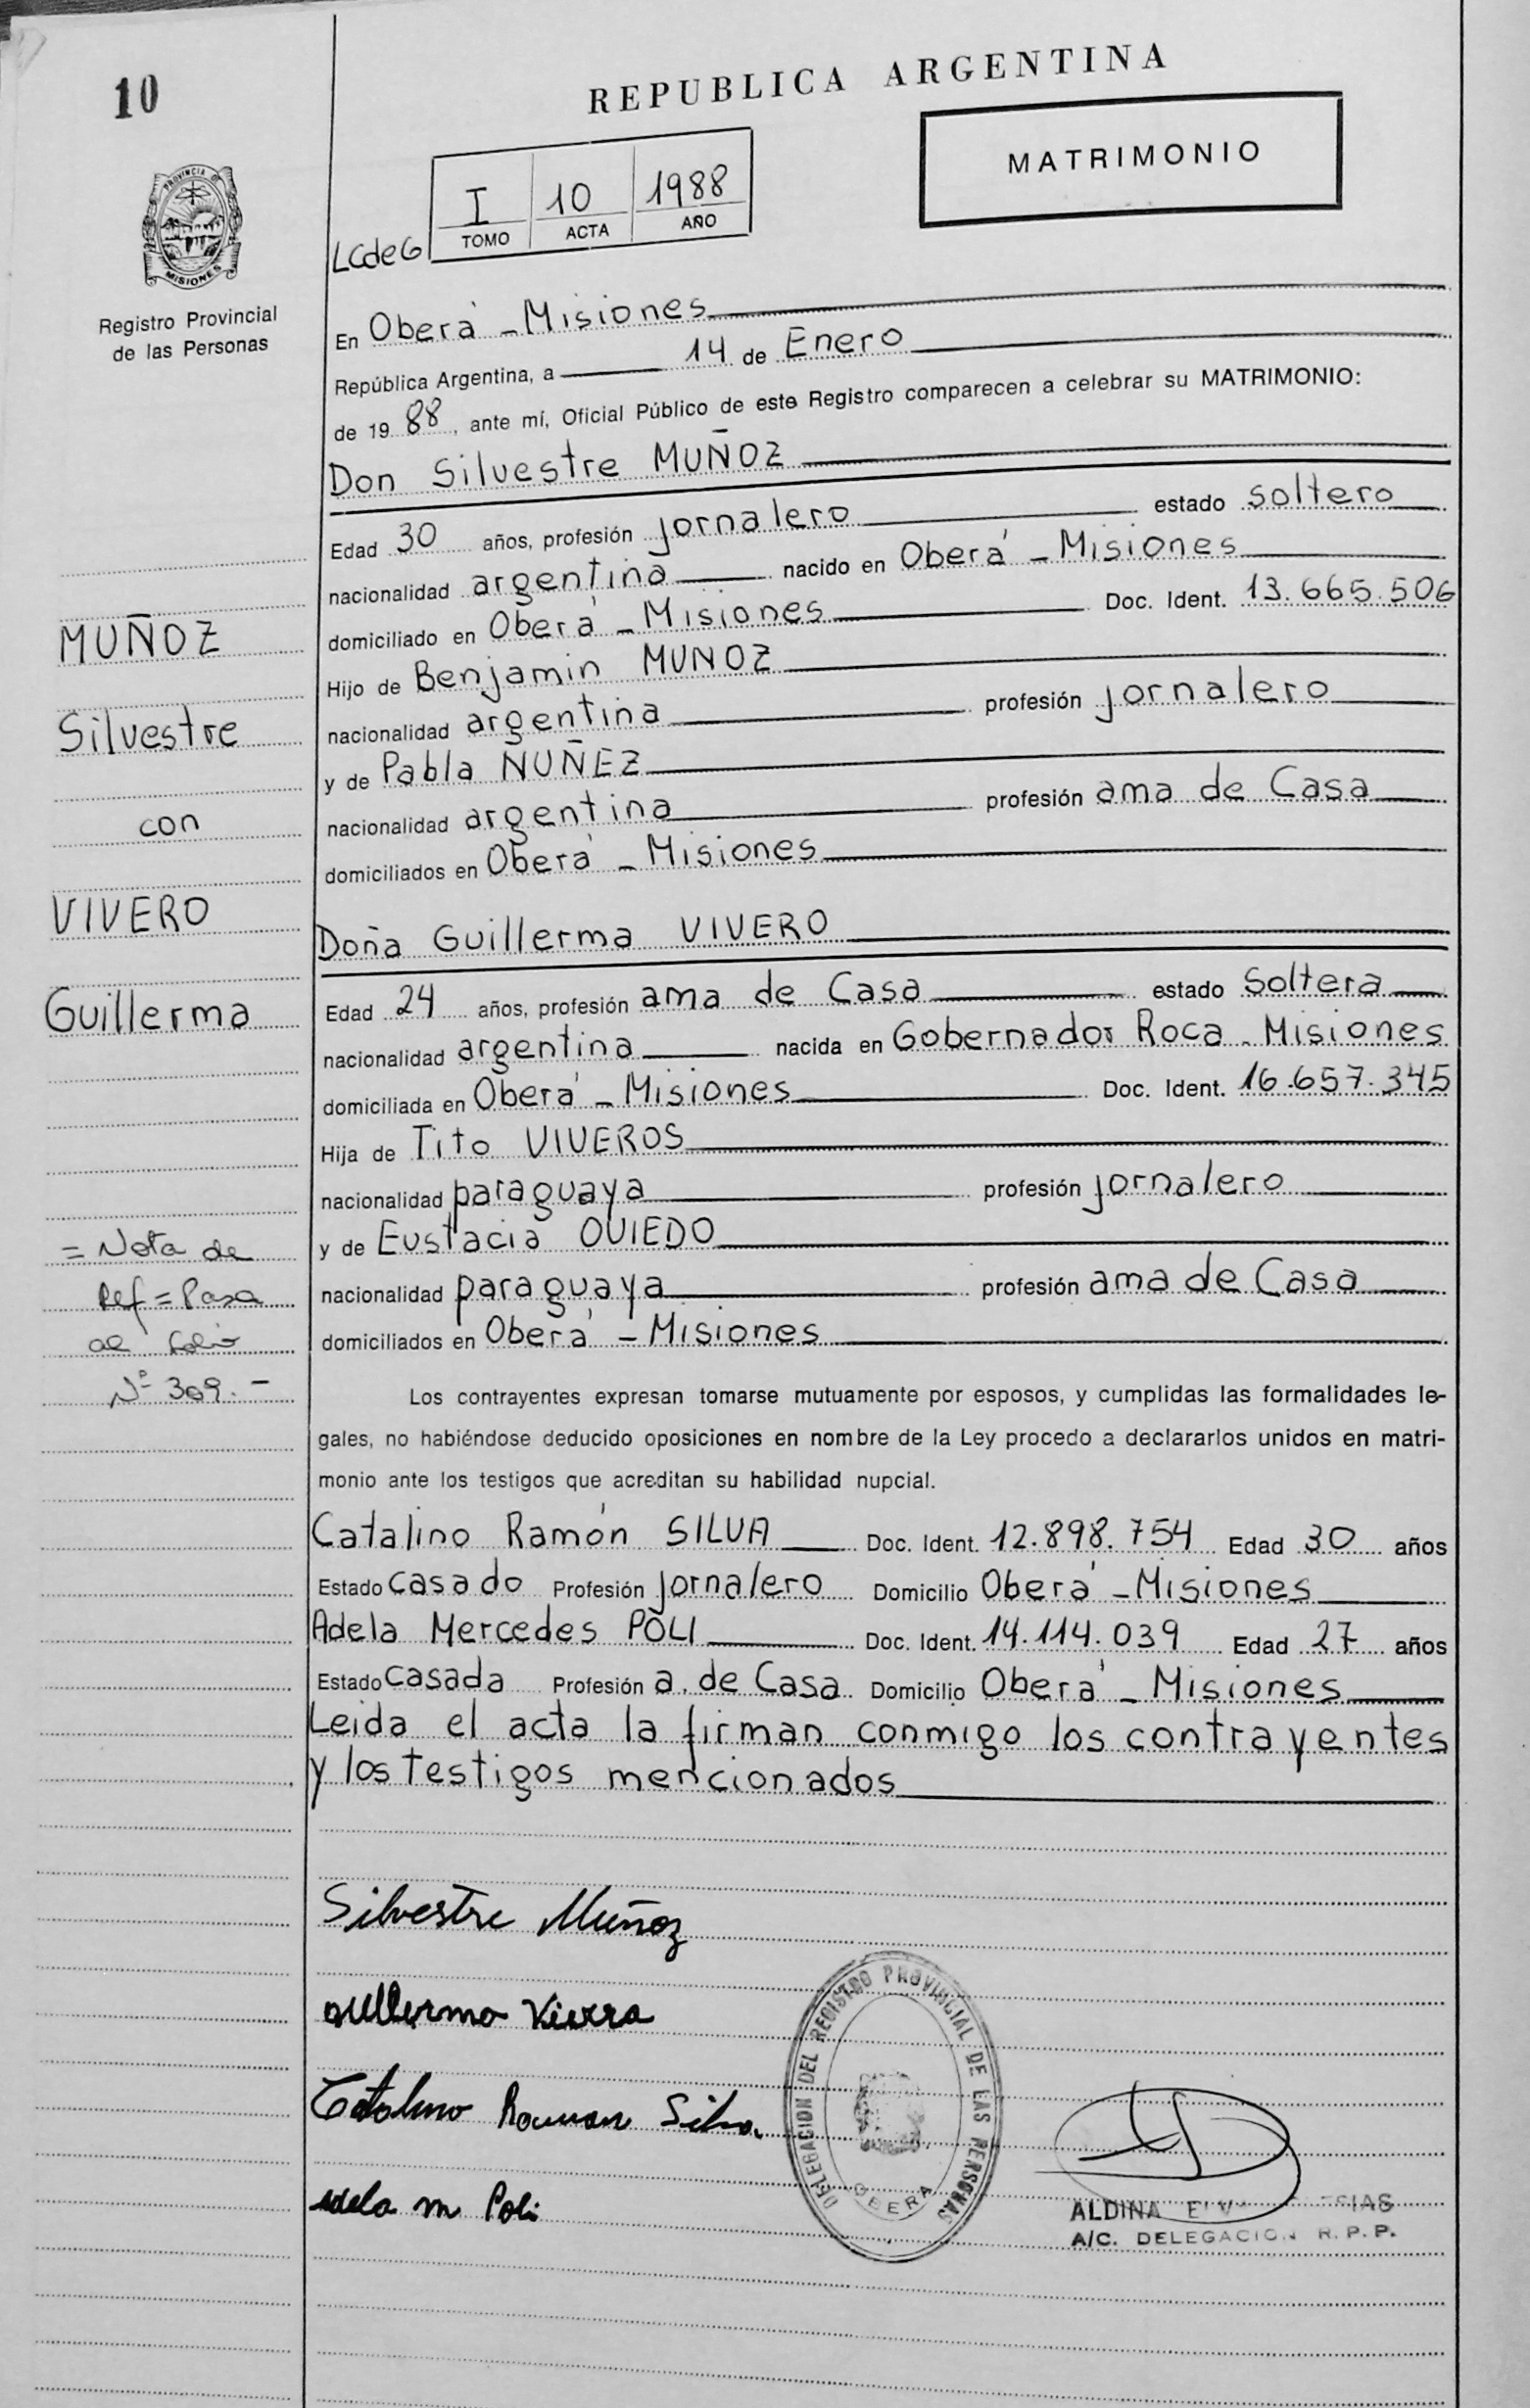 10
REPUBLICA ARGENTINA
MATRIMONIO
I 10 1988
TOMO ACTA AÑO
LCdeG
PROVINCIA DE
MISIONES
Registro Provincial
de las Personas
En Oberá - Misiones
República Argentina, a 14 de Enero
de 19 88, ante mí, Oficial Público de este Registro comparecen a celebrar su MATRIMONIO:
Don Silvestre MUÑOZ
Edad 30 años, profesión jornalero estado soltero
nacionalidad argentina nacido en Oberá - Misiones
domiciliado en Oberá - Misiones Doc. Ident. 13.665.506
Hijo de Benjamin MUNOZ
nacionalidad argentina profesión jornalero
y de Pabla NUÑEZ
nacionalidad argentina profesión ama de Casa
domiciliados en Oberá - Misiones
Doña Guillerma VIVERO
Edad 24 años, profesión ama de Casa estado Soltera
nacionalidad argentina nacida en Gobernador Roca - Misiones
domiciliada en Oberá - Misiones Doc. Ident. 16.657.345
Hija de Tito VIVEROS
nacionalidad paraguaya profesión jornalero
y de Eustacia OVIEDO
nacionalidad paraguaya profesión ama de Casa
domiciliados en Oberá - Misiones
MUÑOZ
Silvestre
con
VIVERO
Guillerma
= Nota de
Ref = Pasa
al folio
Nº 309.-
Los contrayentes expresan tomarse mutuamente por esposos, y cumplidas las formalidades le-
gales, no habiéndose deducido oposiciones en nombre de la Ley procedo a declararlos unidos en matri-
monio ante los testigos que acreditan su habilidad nupcial.
Catalino Ramón SILVA Doc. Ident. 12.898.754 Edad 30 años
Estado Casado Profesión jornalero Domicilio Oberá - Misiones
Adela Mercedes POLI Doc. Ident. 14.114.039 Edad 27 años
Estado Casada Profesión a. de Casa Domicilio Oberá - Misiones
Leida el acta la firman conmigo los contrayentes
y los testigos mencionados
Silvestre Muñoz
DELEGACION DEL REGISTRO PROVINCIAL DE LAS PERSONAS
OBERA
Catalino Ramon Silva.
Adela M Poli
ALDINA
A/C. DELEGACION R.P.P.